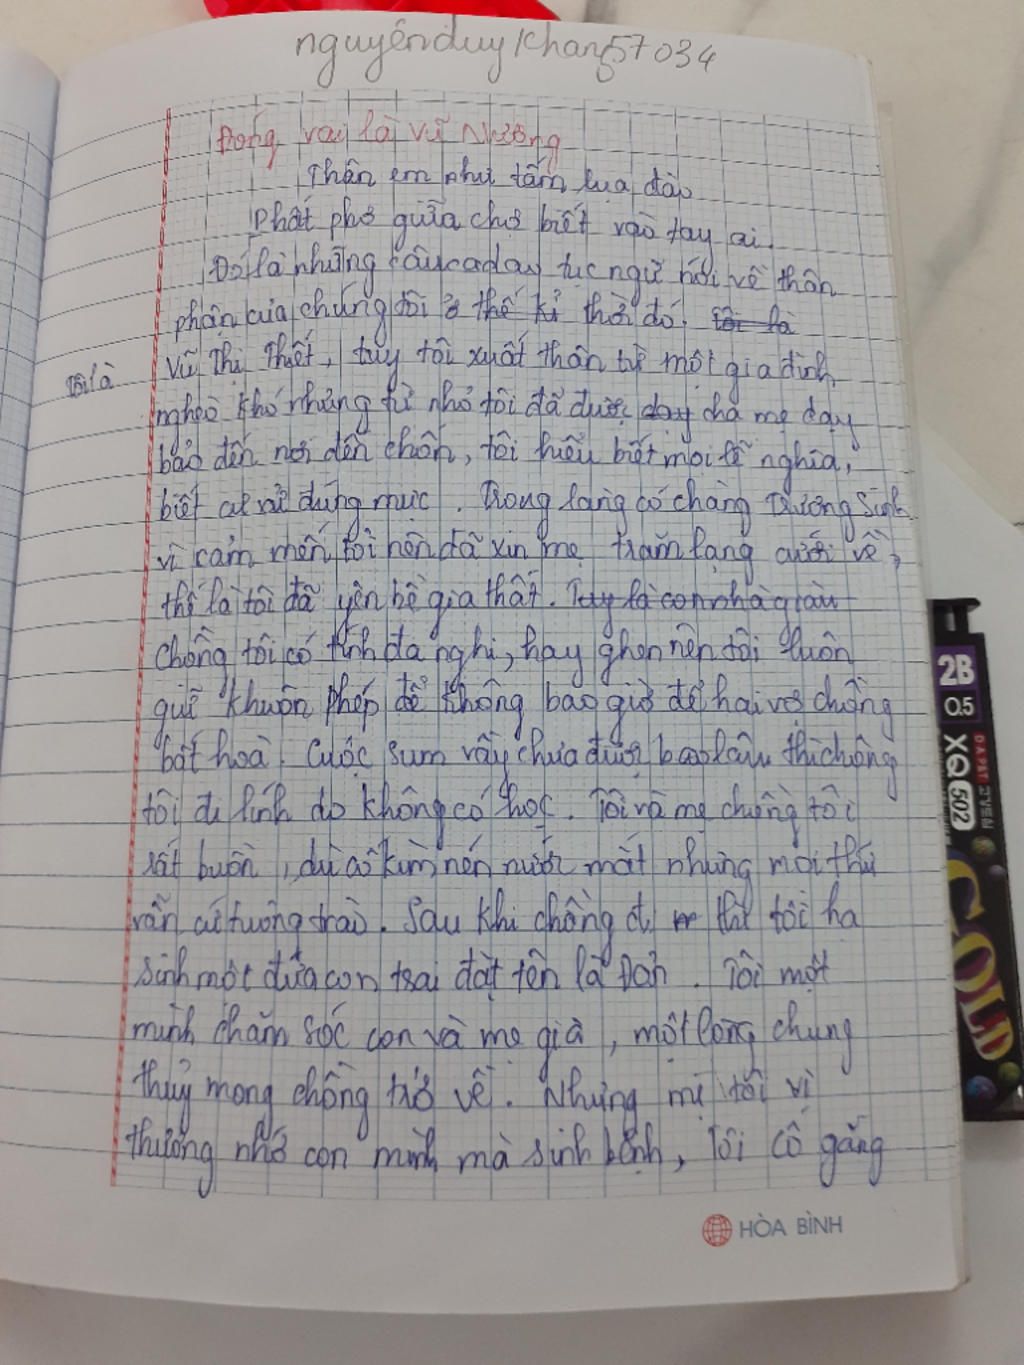 nguyênduykhang57034
Đóng vai là Vũ Nương
Thân em như tấm lụa đào
Phất phơ giữa chợ biết vào tay ai.
Đó là những câu ca dao, tục ngữ nói về thân
phận của chúng tôi ở thế kỉ thời đó. Tôi là
Tôi là
Vũ Thị Thiết, tuy tôi xuất thân từ một gia đình
nghèo khó nhưng từ nhỏ tôi đã được dạy cha mẹ dạy
bảo đến nơi đến chốn, tôi hiểu biết mọi lễ nghĩa,
biết cư xử đúng mực. Trong làng có chàng Trương Sinh
vì cảm mến tôi nên đã xin mẹ trăm lạng cưới về,
thế là tôi đã yên bề gia thất. Tuy là con nhà giàu
chồng tôi có tính đa nghi, hay ghen nên tôi luôn
giữ khuôn phép để không bao giờ để hai vợ chồng
bất hoà. Cuộc sum vầy chưa được bao lâu thì chồng
tôi đi lính do không có học. Tôi và mẹ chồng tôi
rất buồn, dù cố kìm nén nước mắt nhưng mọi thứ
vẫn cứ tuông trào. Sau khi chồng đi thì tôi hạ
sinh một đứa con trai đặt tên là Đản. Tôi một
mình chăm sóc con và mẹ già, một lòng chung
thuỷ mong chồng trở về. Nhưng mẹ tôi vì
thương nhớ con mình mà sinh bệnh, Tôi cố gắng
HÒA BÌNH
2B
0.5
XQ 502
GOLD